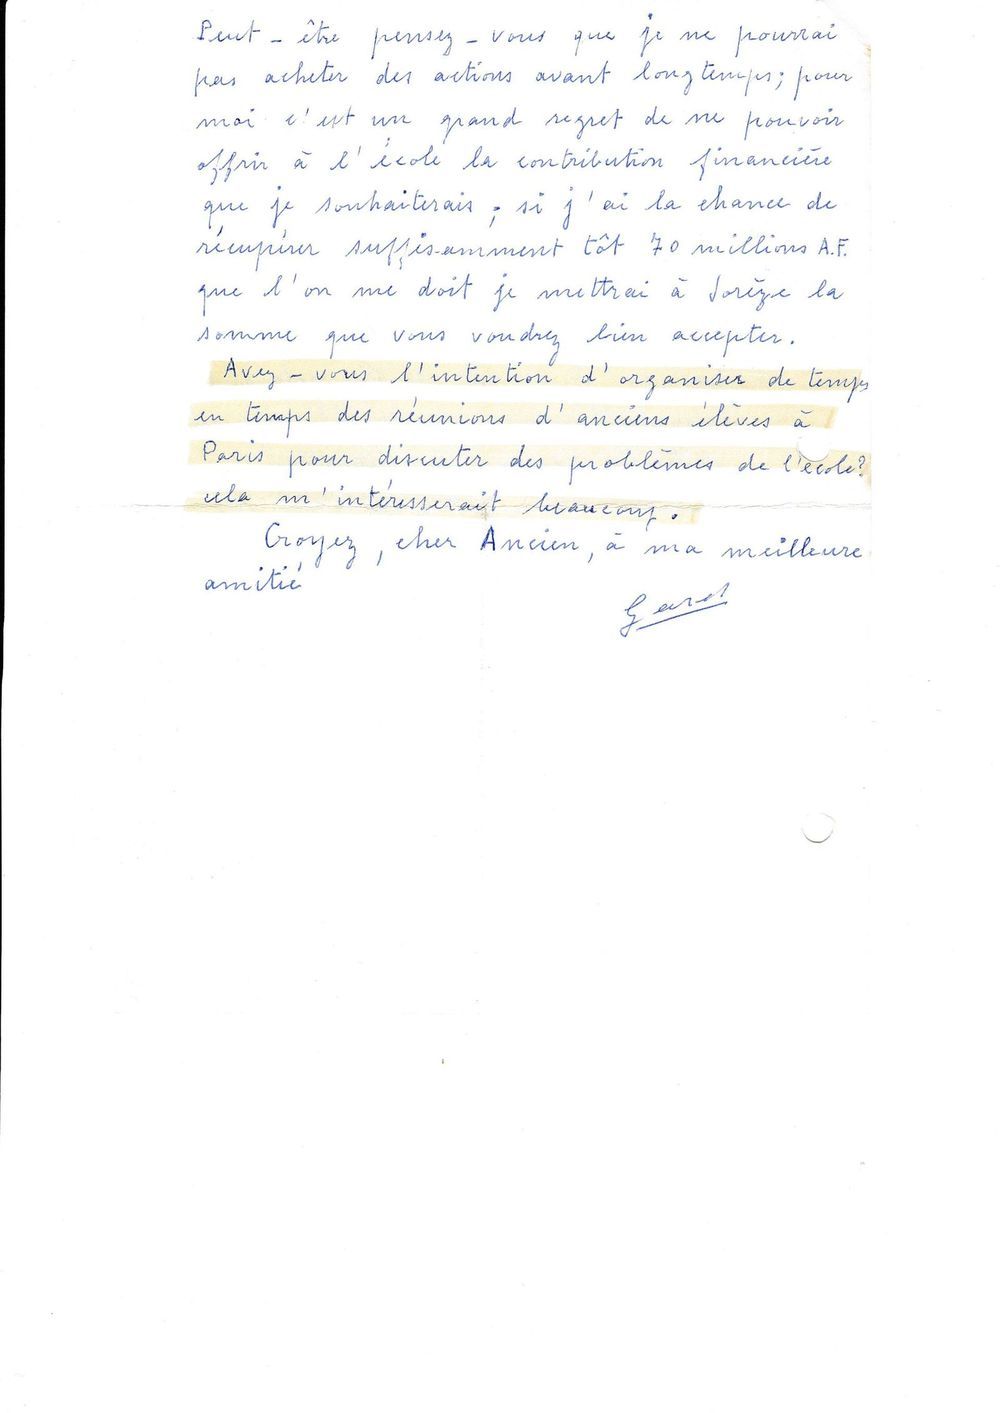 Peut-être pensez-vous que je ne pourrai
pas acheter des actions avant longtemps; pour
moi c'est un grand regret de ne pouvoir
offrir à l'école la contribution financière
que je souhaiterais; si j'ai la chance de
récupérer suffisamment tôt 70 millions A.F.
que l'on me doit je mettrai à Sorèze la
somme que vous voudrez bien accepter.
Avez-vous l'intention d'organiser de temps
en temps des réunions d'anciens élèves à
Paris pour discuter des problèmes de l'école?
cela m'intéresserait beaucoup.
Croyez, cher Ancien, à ma meilleure
amitié